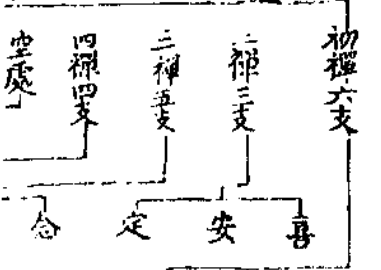 初禪六支
二禪三支
三禪五支
四禪四支
空處
喜
安
定
念